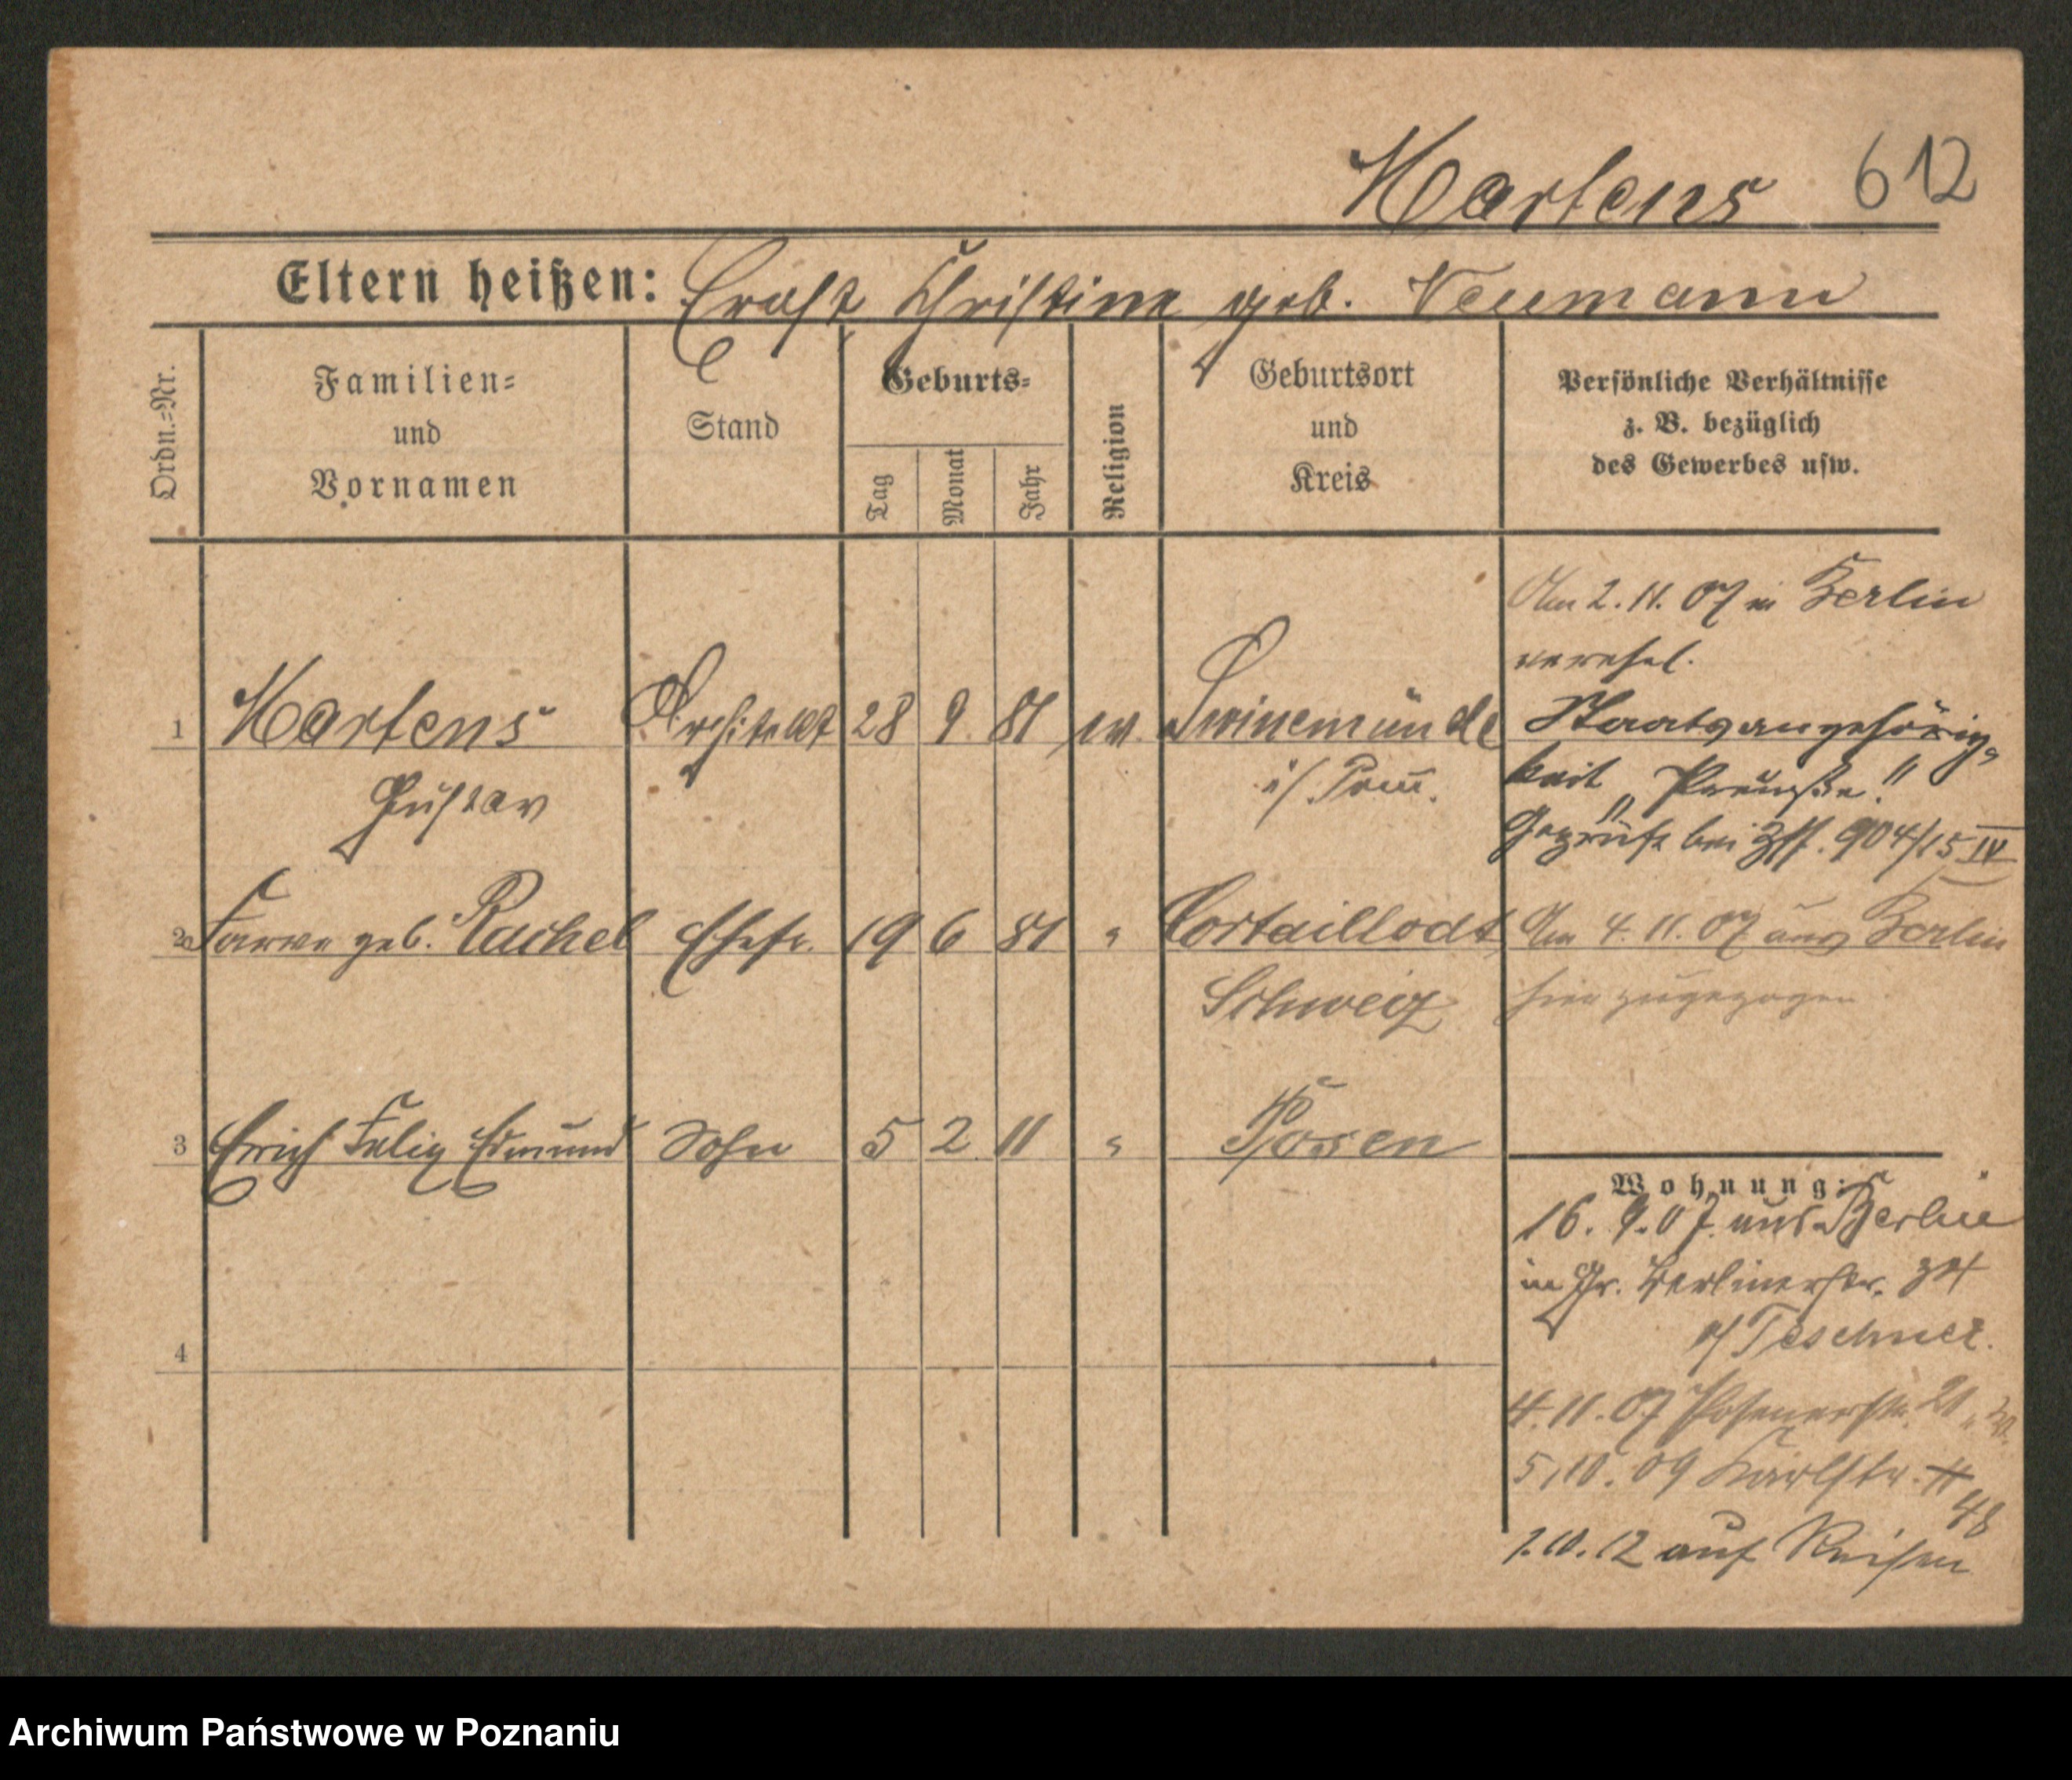 Martens 612
Eltern heißen: Ernst, Christine geb. Neumann
Ordn.=Nr.
Familien=
und
Vornamen
Stand
Geburts=
Tag
Monat
Jahr
Religion
Geburtsort
und
Kreis
Persönliche Verhältnisse
z. B. bezüglich
des Gewerbes usw.
Am 2.11.07 in Berlin
verehel.
1 Martens Architekt 28 9 81 ev. Swinemünde
Gustav i/ Pom̄.
Staatsangehörig=
keit „Preuße."
Geprüft bei 904/15 IV
2 geb. Rachel Ehefr. 19 6 81 " Cortaillodt
Schweiz
Am 4.11.07 aus Berlin
hier zugezogen
3 Erich Felix Edmund Sohn 5 2 11 " Posen
4
Wohnung:
16.9.07. aus Berlin
in Gr. Berlinerstr. 34
b/ Teschner.
4.11.07 Posenerstr. 21
5.10.09 Karlstr. 48
1.10.12 auf Reisen
Archiwum Państwowe w Poznaniu